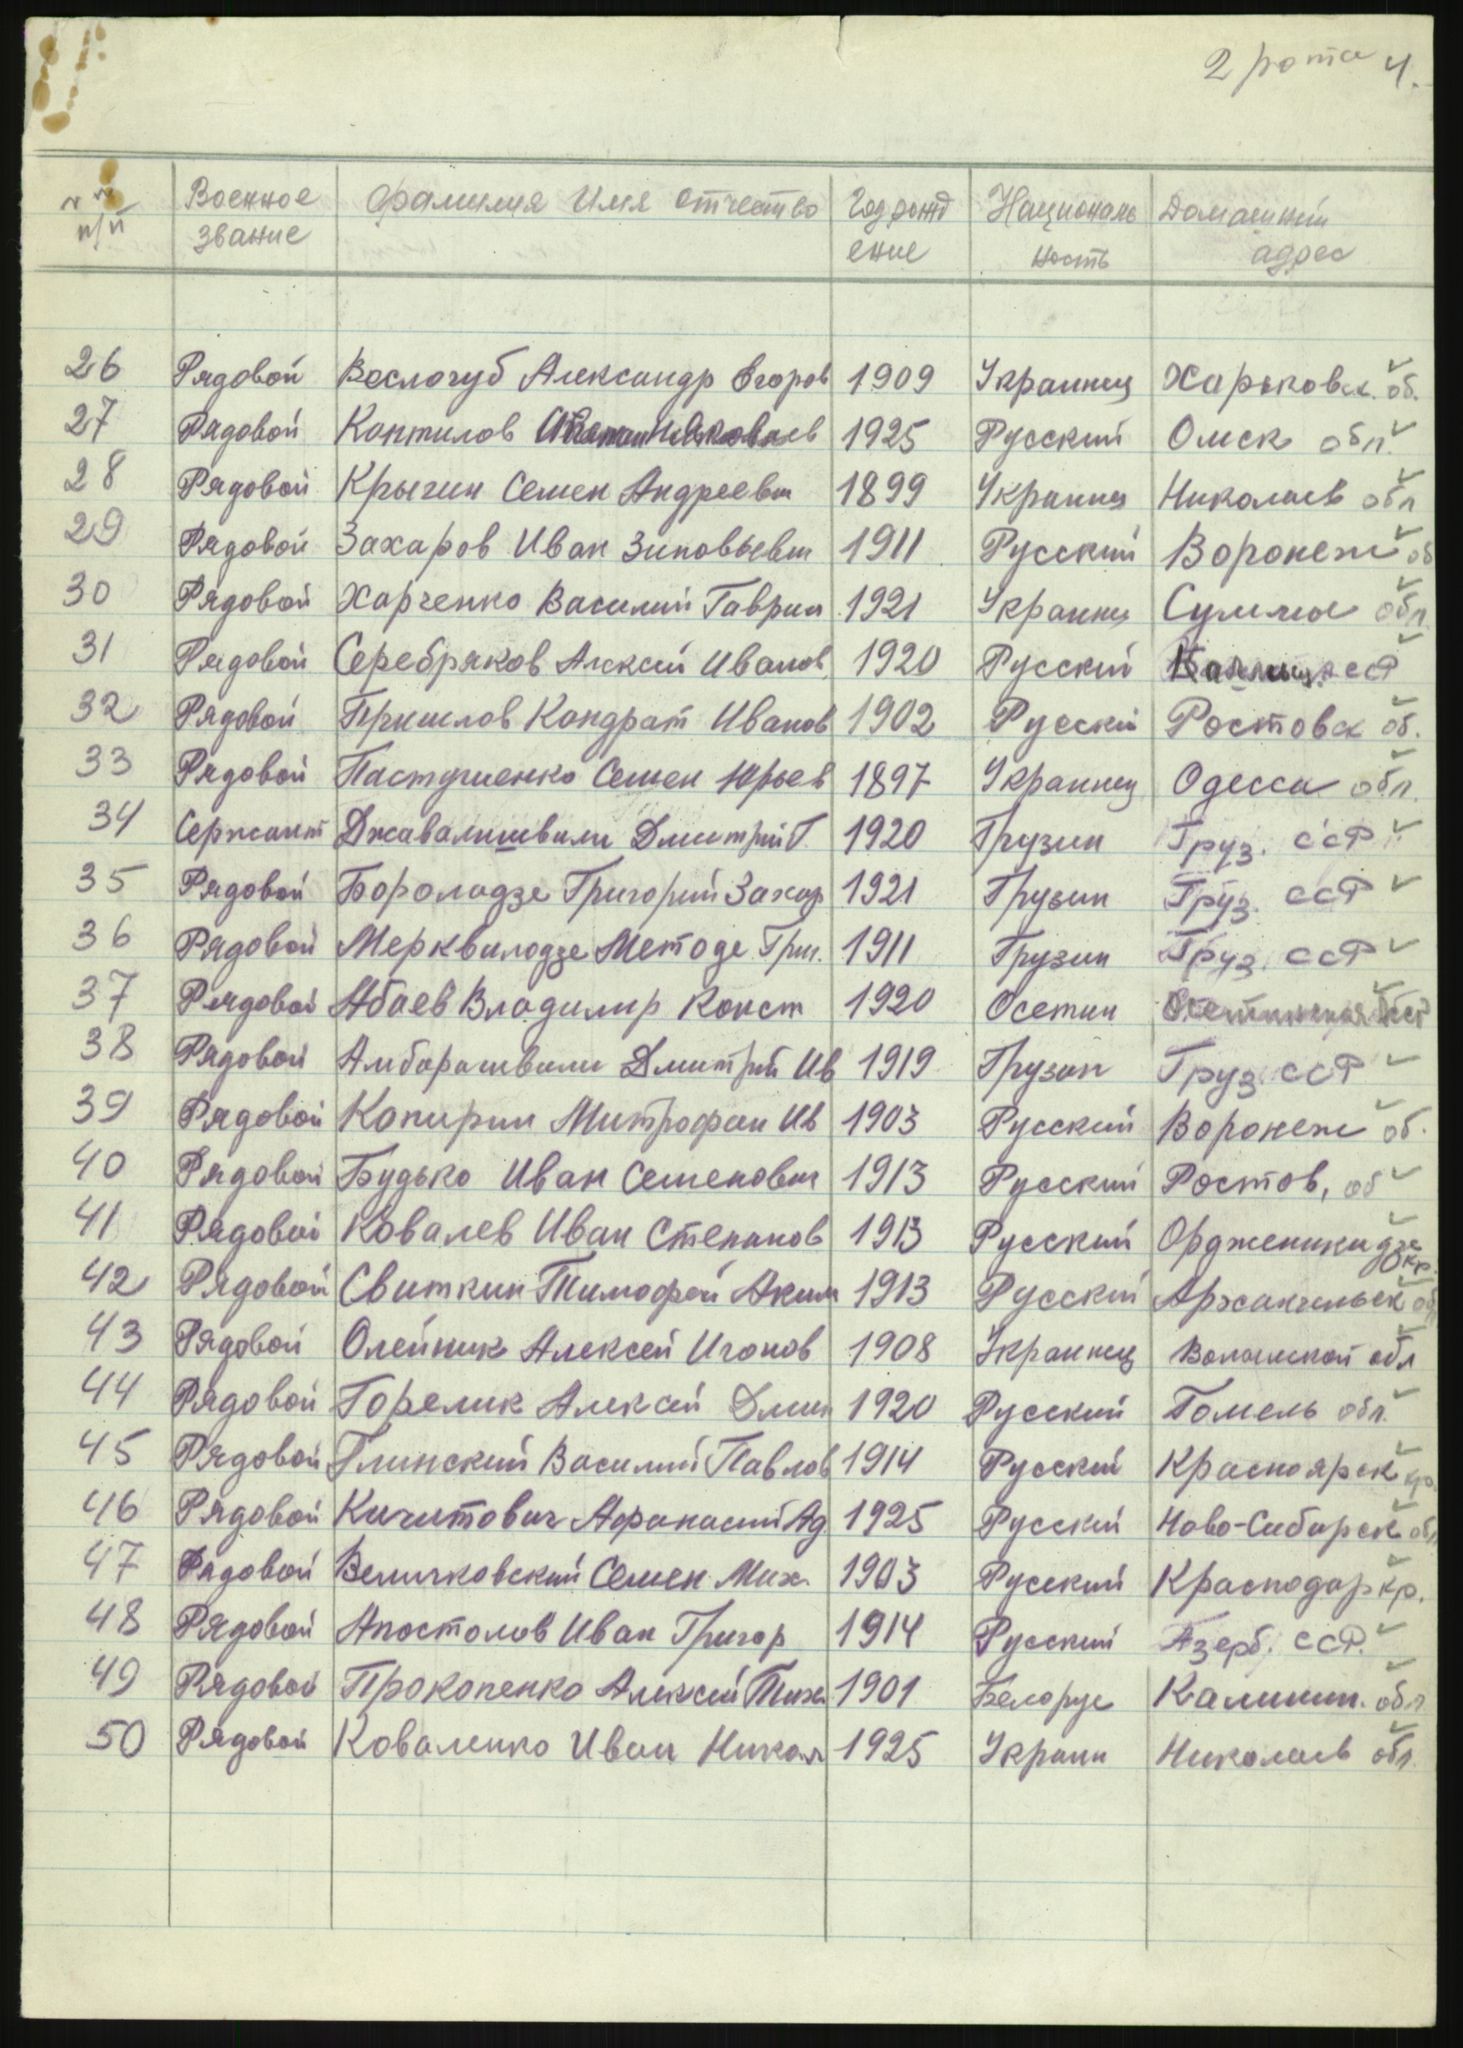 2 рота 4.
№№ п/п Военное звание Фамилия Имя Отчество Год рождение Националь ность Домашний адрес
26 Рядовой Веслогуб Александр Егоров 1909 Украинец Харьковск. об.
27 Рядовой Коптилов 1925 Русский Омск обл.
28 Рядовой Крыгин Семен Андреевич 1899 Украинец Николаев обл
29 Рядовой Захаров Иван Зиновьевич 1911 Русский Воронеж об
30 Рядовой Харченко Василий Гаврил 1921 Украинец Суммы обл.
31 Рядовой Серебряков Алексей Иванов. 1920 Русский ССР
32 Рядовой Пришлов Кондрат Иванов 1902 Русский Ростовск об.
33 Рядовой Пастушенко Семен Юрьев 1897 Украинец Одесса обл.
34 Сержант Джавалишвили Дмитрий Г. 1920 Грузин Груз. ССР
35 Рядовой Бороладзе Григорий Захар 1921 Грузин Груз. ССР
36 Рядовой Мерквиладзе Методе Григ. 1911 Грузин Груз. ССР
37 Рядовой Абаев Владимир Конст 1920 Осетин Осетинская
38 Рядовой Амбарашвили Дмитрий Ив 1919 Грузин Груз ССР
39 Рядовой Копирин Митрофан Ив 1903 Русский Воронеж об.
40 Рядовой Будько Иван Семенович 1913 Русский Ростов, об
41 Рядовой Ковалев Иван Степанов 1913 Русский Орджоникидзе кр.
42 Рядовой Свиткин Тимофей Аким 1913 Русский Архангельск об
43 Рядовой Олейник Алексей Игонов 1908 Украинец обл
44 Рядовой Горелик Алексей Дмит 1920 Русский Гомель обл.
45 Рядовой Глинский Василий Павлов 1914 Русский Красноярск кр.
46 Рядовой Кичитович Афанасий Ад 1925 Русский Ново-Сибирск обл
47 Рядовой Величковский Семен Мих. 1903 Русский Краснодар кр.
48 Рядовой Апостолов Иван Григор 1914 Русский Азерб. ССР.
49 Рядовой Прокопенко Алексей Тих 1901 Белорус Калинин. обл
50 Рядовой Коваленко Иван Никол 1925 Украин Николаев обл.